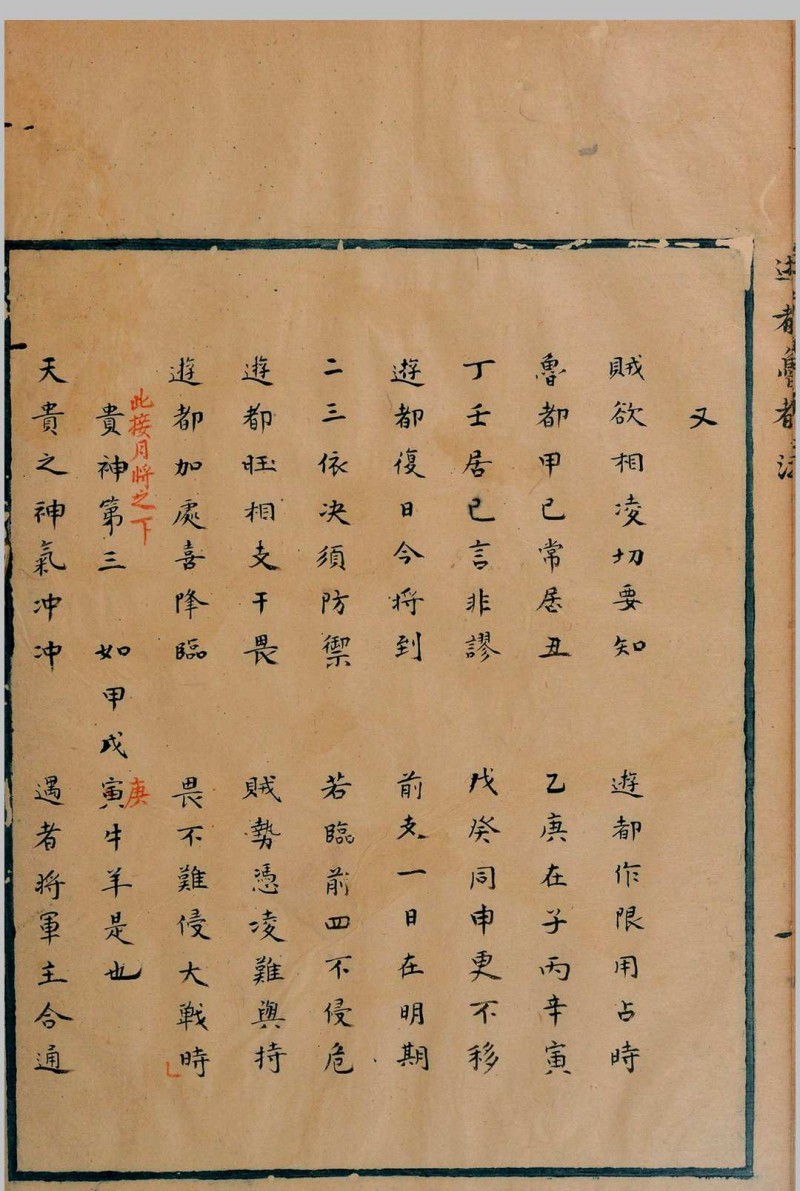 遊都魯都法
又
賊欲相凌切要知 遊都作限用占時
魯都甲己常居丑 乙庚在子丙辛寅
丁壬居巳言非謬 戊癸同申更不移
遊都復日今將到 前支一日在明期
二三依决須防禦 若臨前四不侵危
遊都旺相支干畏 賊勢憑凌難與持
遊都加處喜降臨 畏不難侵大戰時
此接月將之下
貴神第三 如甲戊寅牛羊是也
庚
天貴之神氣冲冲 遇者將軍主合通